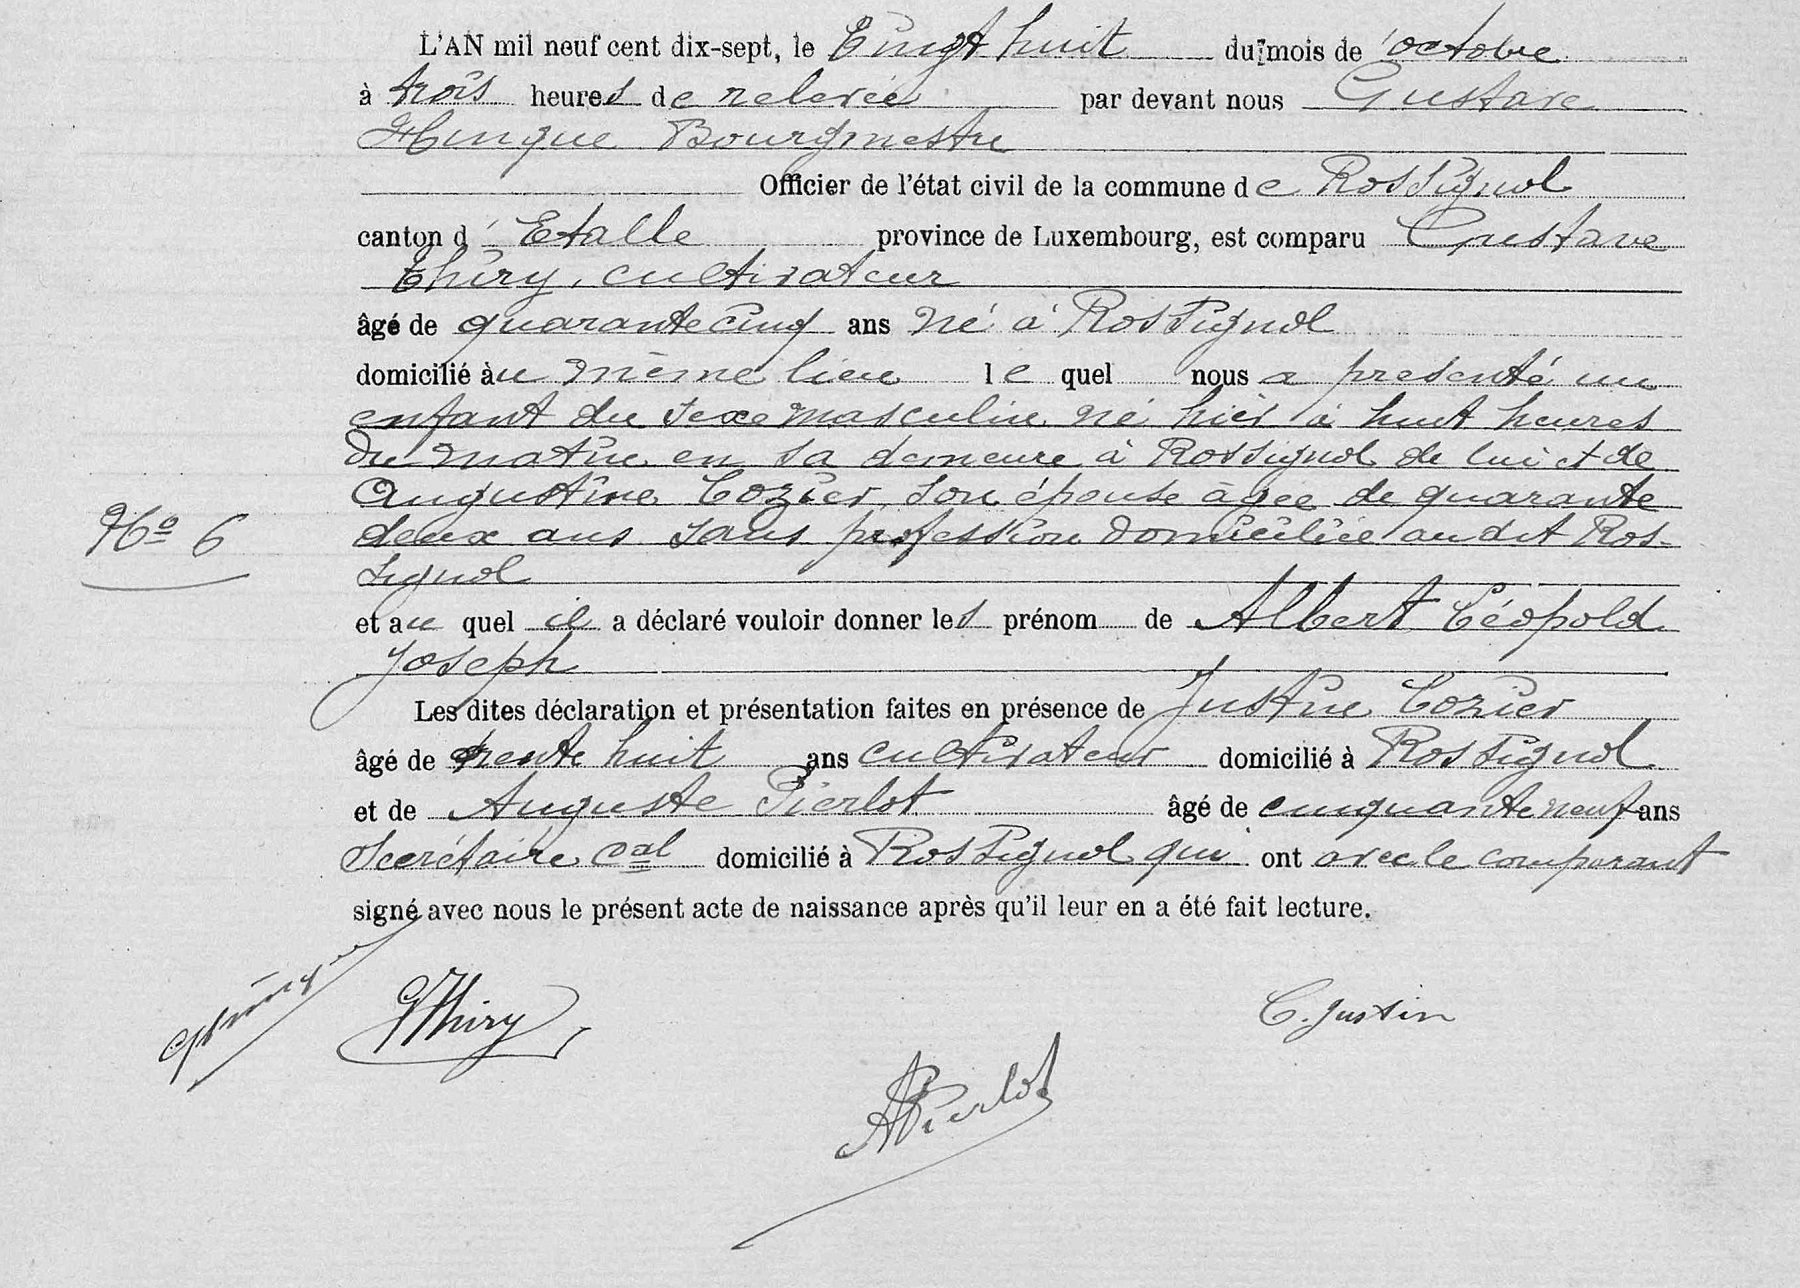 L'AN mil neuf cent dix-sept, le Vingt huit du mois de octobre
à trois heures de relevée par devant nous Gustave
Hinque Bourgmestre
Officier de l'état civil de la commune de Rossignol
canton d'Etalle province de Luxembourg, est comparu Gustave
Thiry, cultivateur
âgé de quarante cinq ans né à Rossignol
domicilié au même lieu lequel nous a presenté un
enfant du sexe masculin né hier à huit heures
du matin en sa demeure à Rossignol de lui et de
Augustine Cozier son épouse âgée de quarante
deux ans sans profession domiciliée audit Ros-
signol
N° 6
et au quel il a déclaré vouloir donner les prénom de Albert Léopold
Joseph
Les dites déclaration et présentation faites en présence de Justin Cozier
âgé de trente huit ans cultivateur domicilié à Rossignol
et de Auguste Pierlot âgé de cinquante neuf ans
Secrétaire cal domicilié à Rossignol qui ont avec le comparant
signé avec nous le présent acte de naissance après qu'il leur en a été fait lecture.
GThiry
C. Justin
APierlot